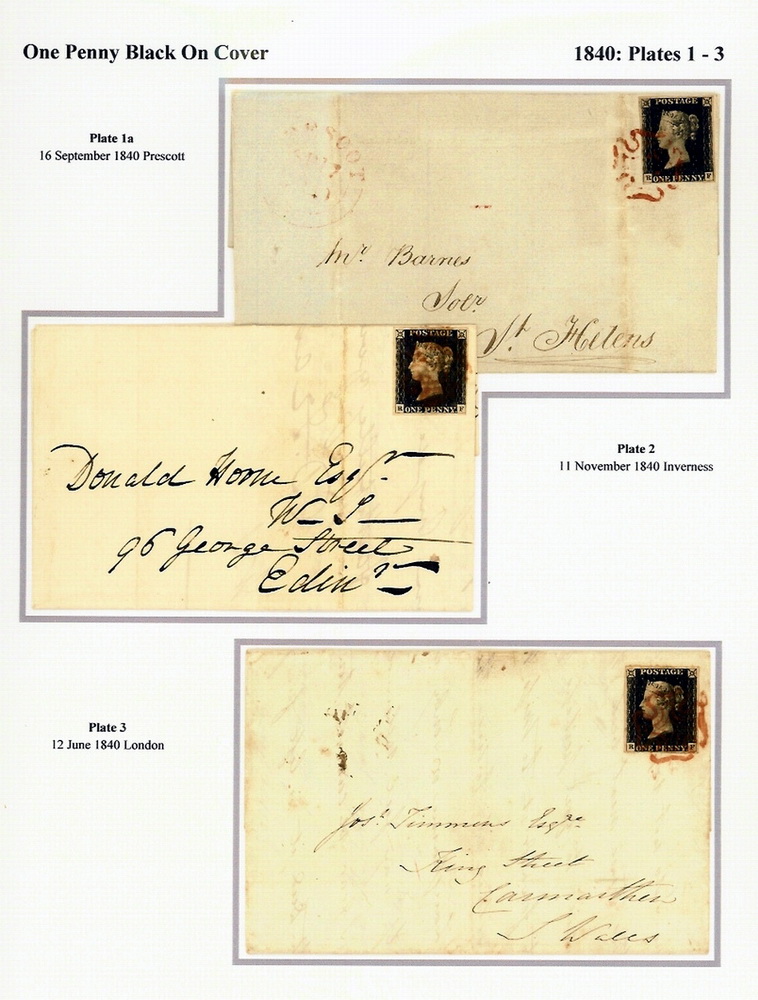 One Penny Black On Cover
1840: Plates 1 - 3
Plate 1a
16 September 1840 Prescott
POSTAGE
R ONE PENNY F
Mr. Barnes
Solr.
St. Helens
POSTAGE
R ONE PENNY F
Donald Horne Esqr.
W S
96 George Street
Edinr.
Plate 2
11 November 1840 Inverness
Plate 3
12 June 1840 London
POSTAGE
R ONE PENNY F
Josh. Timmens Esqre.
King Street
Carmarthen
S Wales